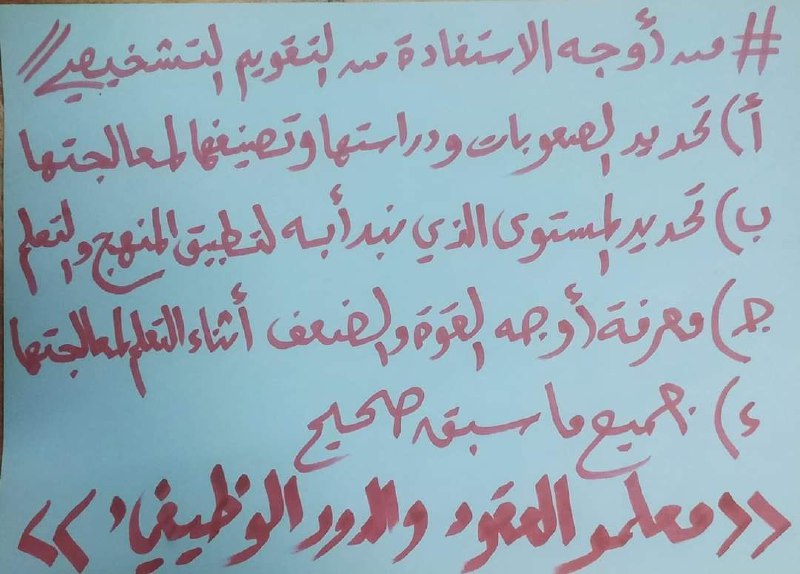 # من أوجه الاستفادة من التقويم التشخيصي //
أ) تحديد الصعوبات ودراستها وتصنيفها لمعالجتها
ب) تحديد المستوى الذي نبدأ به لتطبيق المنهج والتعلم
جـ) معرفة أوجه القوة والضعف أثناء التعلم لمعالجتها
د) جميع ما سبق صحيح
<<معلمو العقود والدور الوظيفي>>